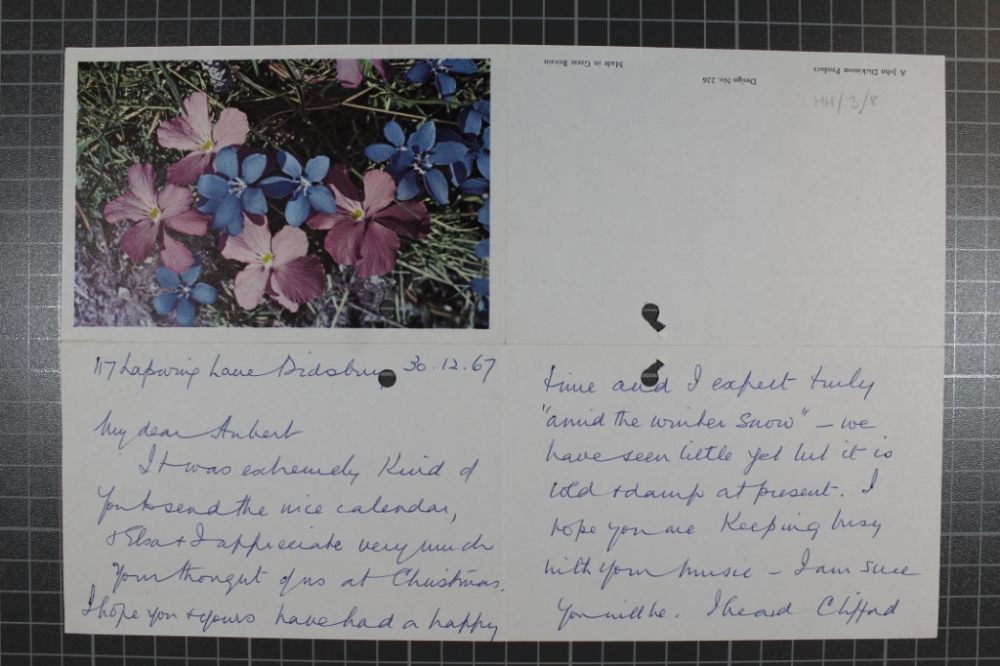 A John Dickinson Product
Design No. 226
Made in Great Britain
HH/3/8
117 Lapwing Lane Didsbury 30.12.67
My dear
It was extremely Kind of
you to send the nice calendar,
& Elsa & I appreciate very much
your thought of us at Christmas.
I hope you & yours have had a happy
time and I expect truly
"amid the winter snow" – we
have seen little yet but it is
cold & damp at present. I
hope you are Keeping busy
with your music – I am sure
you will be. I heard Clifford